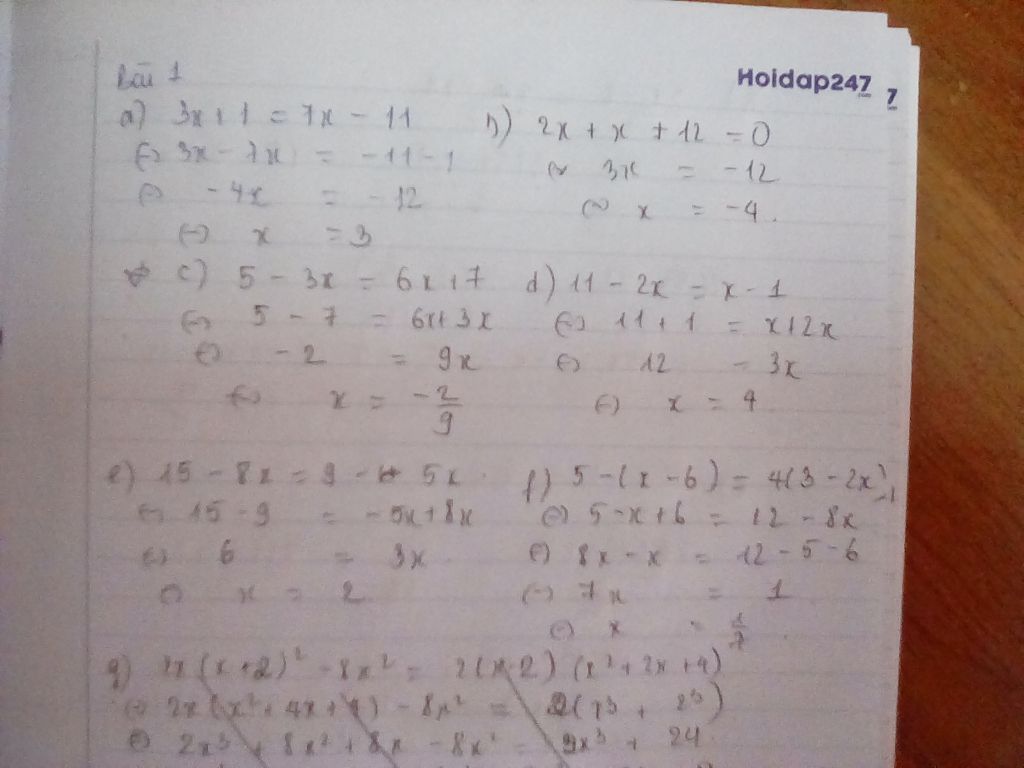 Bài 1
Hoidap247
7
a) 3x + 1 = 7x - 11
(=) 3x - 7x = -11 - 1
(=) -4x = -12
(=) x = 3
b) 2x + x + 12 = 0
(=) 3x = -12
(=) x = -4.
c) 5 - 3x = 6x + 7
(=) 5 - 7 = 6x + 3x
(=) -2 = 9x
(=) x = -2/9
d) 11 - 2x = x - 1
(=) 11 + 1 = x + 2x
(=) 12 = 3x
(=) x = 4
e) 15 - 8x = 9 - 5x
(=) 15 - 9 = -5x + 8x
(=) 6 = 3x
(=) x = 2
f) 5 - (x - 6) = 4(3 - 2x)
(=) 5 - x + 6 = 12 - 8x
(=) 8x - x = 12 - 5 - 6
(=) 7x = 1
(=) x = 1/7
g) 2x(x + 2)² - 8x² = 2(x - 2)(x² + 2x + 4)
(=) 2x(x² + 4x + 4) - 8x² = 2(x³ + 2³)
(=) 2x³ + 8x² + 8x - 8x² = 2x³ + 24